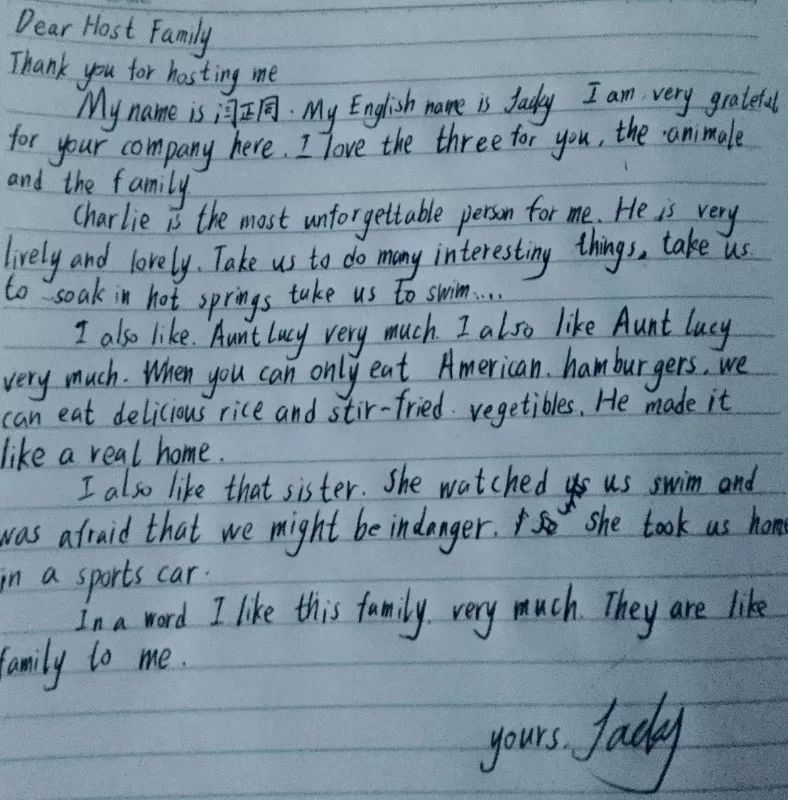 Dear Host Family
Thank you for hosting me
My name is 闫正同. My English name is Jacky I am very grateful
for your company here. I love the three for you, the animale
and the family
Charlie is the most unforgettable person for me. He is very
lively and lovely. Take us to do many interesting things, take us
to soak in hot springs take us to swim....
I also like. Aunt Lucy very much. I also like Aunt lucy
very much. When you can only eat American. hamburgers. we
can eat delicious rice and stir-fried vegetibles. He made it
like a real home.
I also like that sister. She watched us swim and
was afraid that we might be indanger. so she took us home
in a sports car.
In a word I like this family. very much. They are like
family to me.
yours. Jacky